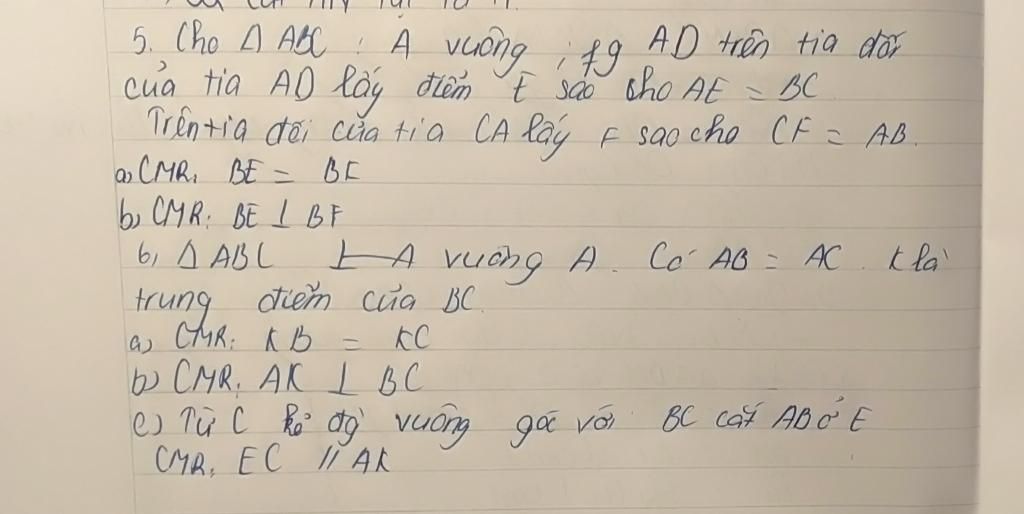 5. Cho Δ ABC : A vuông ; fg AD trên tia đối
của tia AD lấy điểm E sao cho AE = BC
Trên tia đối của tia CA lấy F sao cho CF = AB.
a, CMR, BE = BF
b, CMR: BE ⊥ BF
6, Δ ABC A vuông A. Có AB = AC. K là
trung điểm của BC
a) CMR: KB = KC
b) CMR, AK ⊥ BC
c) Từ C kẻ đg vuông góc với BC cắt AB ở E
CMR, EC // AK